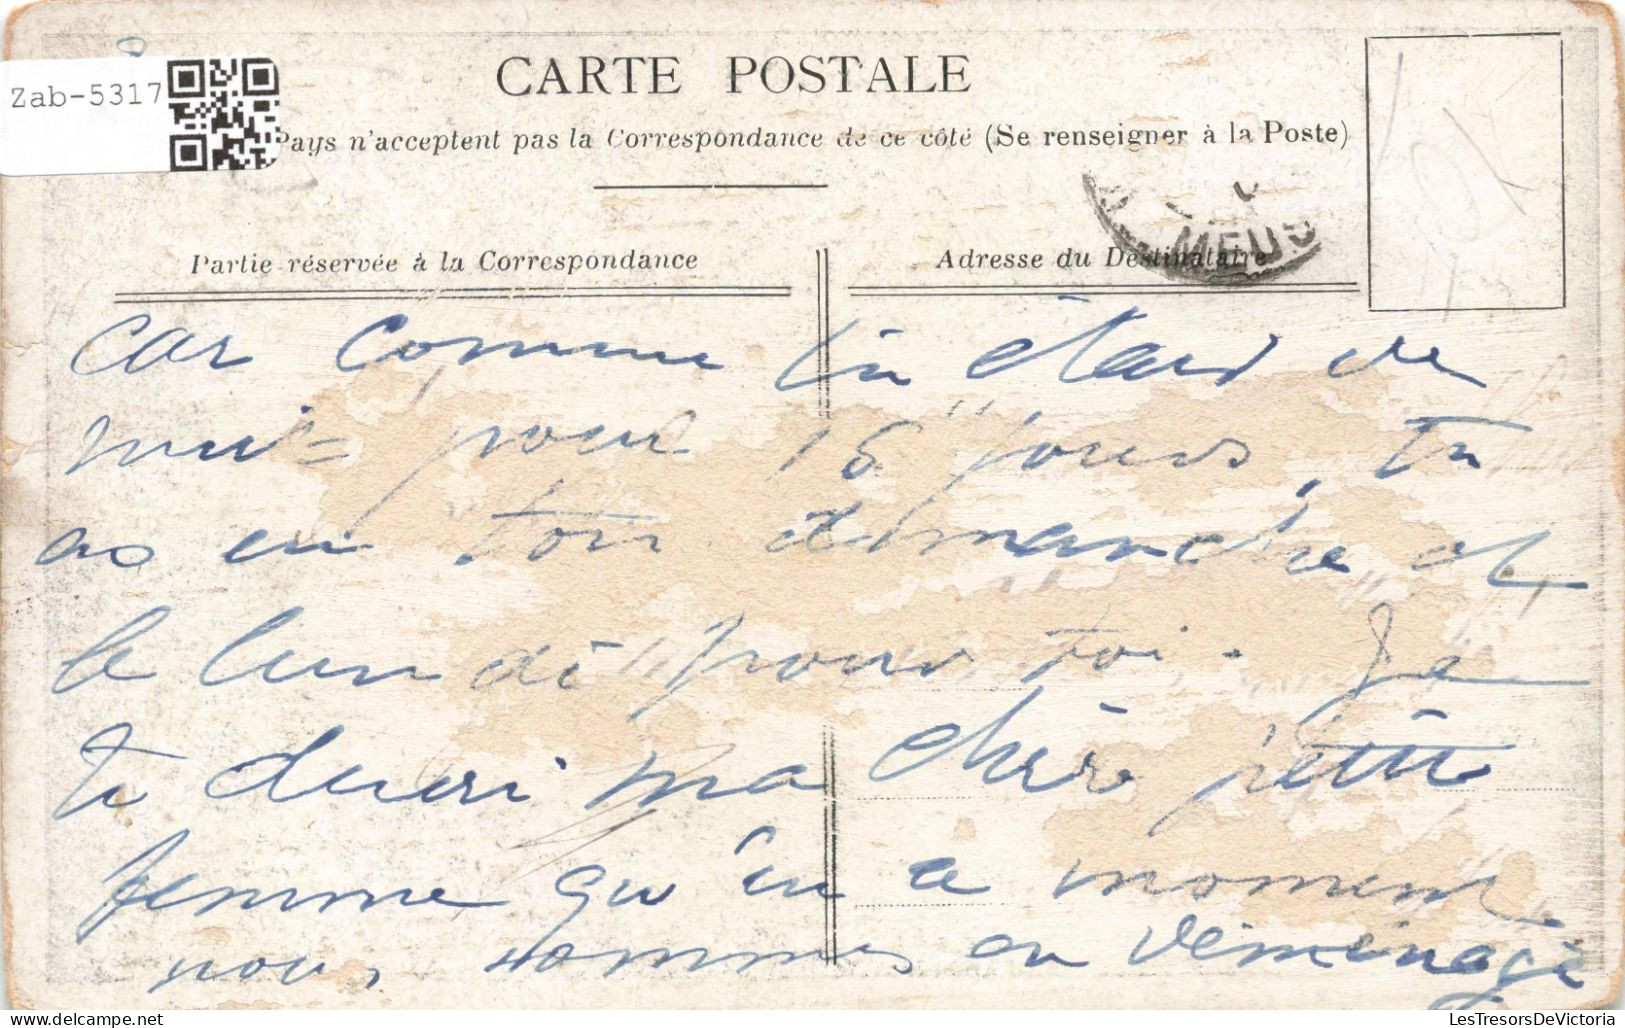 Zab-5317
CARTE POSTALE
Pays n'acceptent pas la Correspondance de ce côté (Se renseigner à la Poste)
MEUS
Partie réservée à la Correspondance
Adresse du Destinataire
car comme tu étais de
nuit pour 15 jours, tu
as eu ton dimanche et
le lundi pour toi. Je
te dirai ma chère petite
femme qu'en ce moment
nous sommes en déménage
LesTresorsDeVictoria